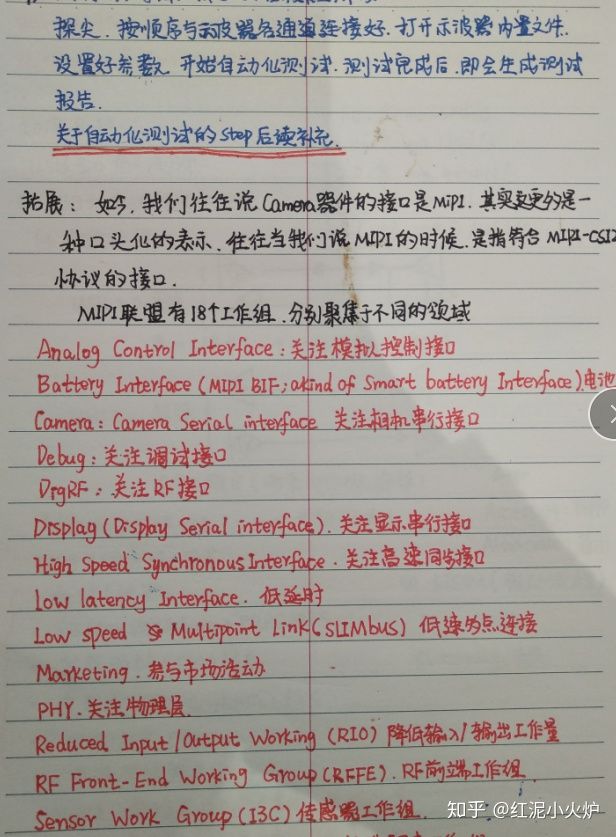 探头，按顺序与示波器各通道连接好，打开示波器内置文件.
设置好参数，开始自动化测试．测试完成后，即会生成测试
报告．
关于自动化测试的Step后续补充．
拓展： 如今，我们往往说Camera器件的接口是MIPI．其实更多的是一
种口头化的表示、往往当我们说MIPI的时候，是指符合 MIPI-CSI2
协议的接口．
MIPI联盟有18个工作组．分别聚焦于不同的领域
Analog Control Interface：关注模拟控制接口
Battery Interface (MIPI BIF; akind of Smart battery Interface).电池
Camera：Camera Serial interface 关注相机串行接口
Debug：关注调试接口
DigRF：关注RF接口
Display (Display Serial interface)．关注显示串行接口
High Speed Synchronous Interface．关注高速同步接口
Low latency Interface．低延时
Low speed Multipoint Link (SLIMbus) 低速多点连接
Marketing．参与市场活动
PHY．关注物理层
Reduced Input/Output Working (RIO) 降低输入/输出工作量
RF Front-End Working Group (RFFE)．RF前端工作组
Sensor Work Group (I3C) 传感器工作组．
知乎 @红泥小火炉